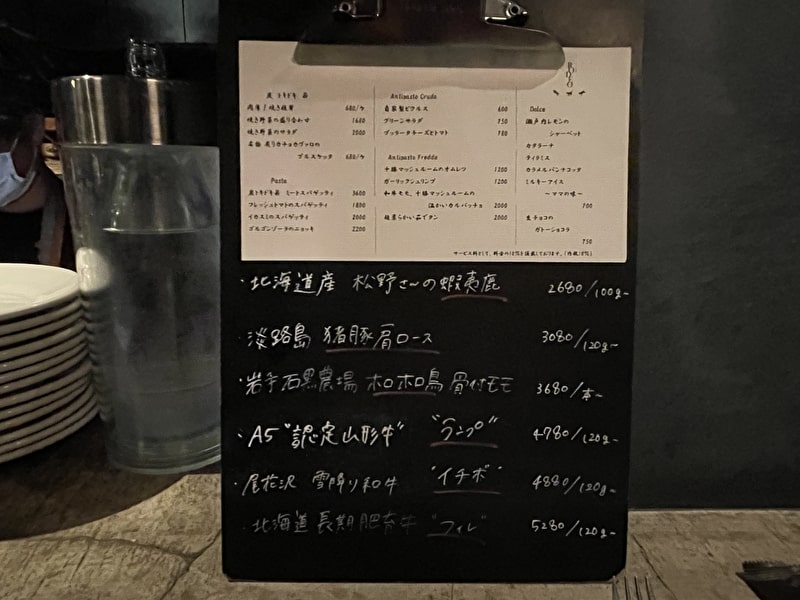 BODEGO
炭 トキドキ 薪
肉澤!焼き椎茸 680/ケ
焼き野菜の盛り合わせ 1680
焼き野菜のサラダ 2000
名物 炙りカチョカヴァッロの
ブルスケッタ 680/ケ
Pasta
炭トキドキ薪 ミートスパゲッティ 3600
フレッシュトマトのスパゲッティ 1890
イカスミのスパゲッティ 2000
ゴルゴンゾーラのニョッキ 2200
Antipasto Crudo
自家製ピクルス 600
グリーンサラダ 750
ブッラータチーズとトマト 780
Antipasto Freddo
十勝マッシュルームのオムレツ 1200
ガーリックシュリンプ 1200
和牛モモ、十勝マッシュルームの
温かいカルパッチョ 2000
極柔らかい茹でタン 2000
Dolce
瀬戸内レモンの
シャーベット
カタラーナ
ティラミス
カラメルパンナコッタ
ミルキーアイス
～ママの味～
700
生チョコの
ガトーショコラ
750
サービス料として、料金の10%を頂戴しております。(内税10%)
・北海道産 松野さーの蝦夷鹿 2680/100g~
・淡路島 猪豚肩ロース 3080/120g~
・岩手石黒農場 ホロホロ鳥 骨付モモ 3680/本~
・A5"認定山形牛" "ランプ" 4780/120g~
・尾花沢 雪降り和牛 "イチボ" 4880/120g~
・北海道 長期肥育牛 "フィレ" 5280/120g~